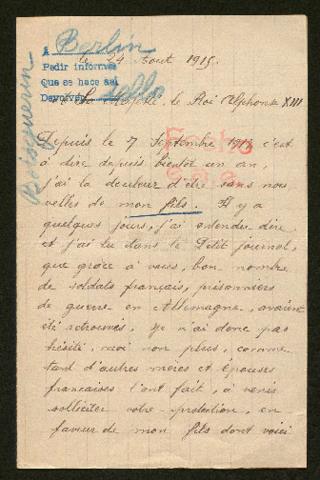 A Berlin
le 24 Aout 1915.
Pedir informes
Que se hace así
Devolver sello
Sa Majesté, le Roi Alphonse XIII
Depuis le 7 Septembre 1914 c'est
à dire depuis bientôt un an,
j'ai la douleur d'être sans nou
velles de mon fils. Il y a
quelques jours, j'ai entendu dire
et j'ai lu dans le Petit journal,
que grâce à vous, bon nombre
de soldats français, prisonniers
de guerre en Allemagne, avaient
été retrouvés. Je n'ai donc pas
hésité, moi non plus, comme
tant d'autres mères et épouses
françaises l'ont fait, à venir
solliciter votre protection, en
faveur de mon fils dont voici